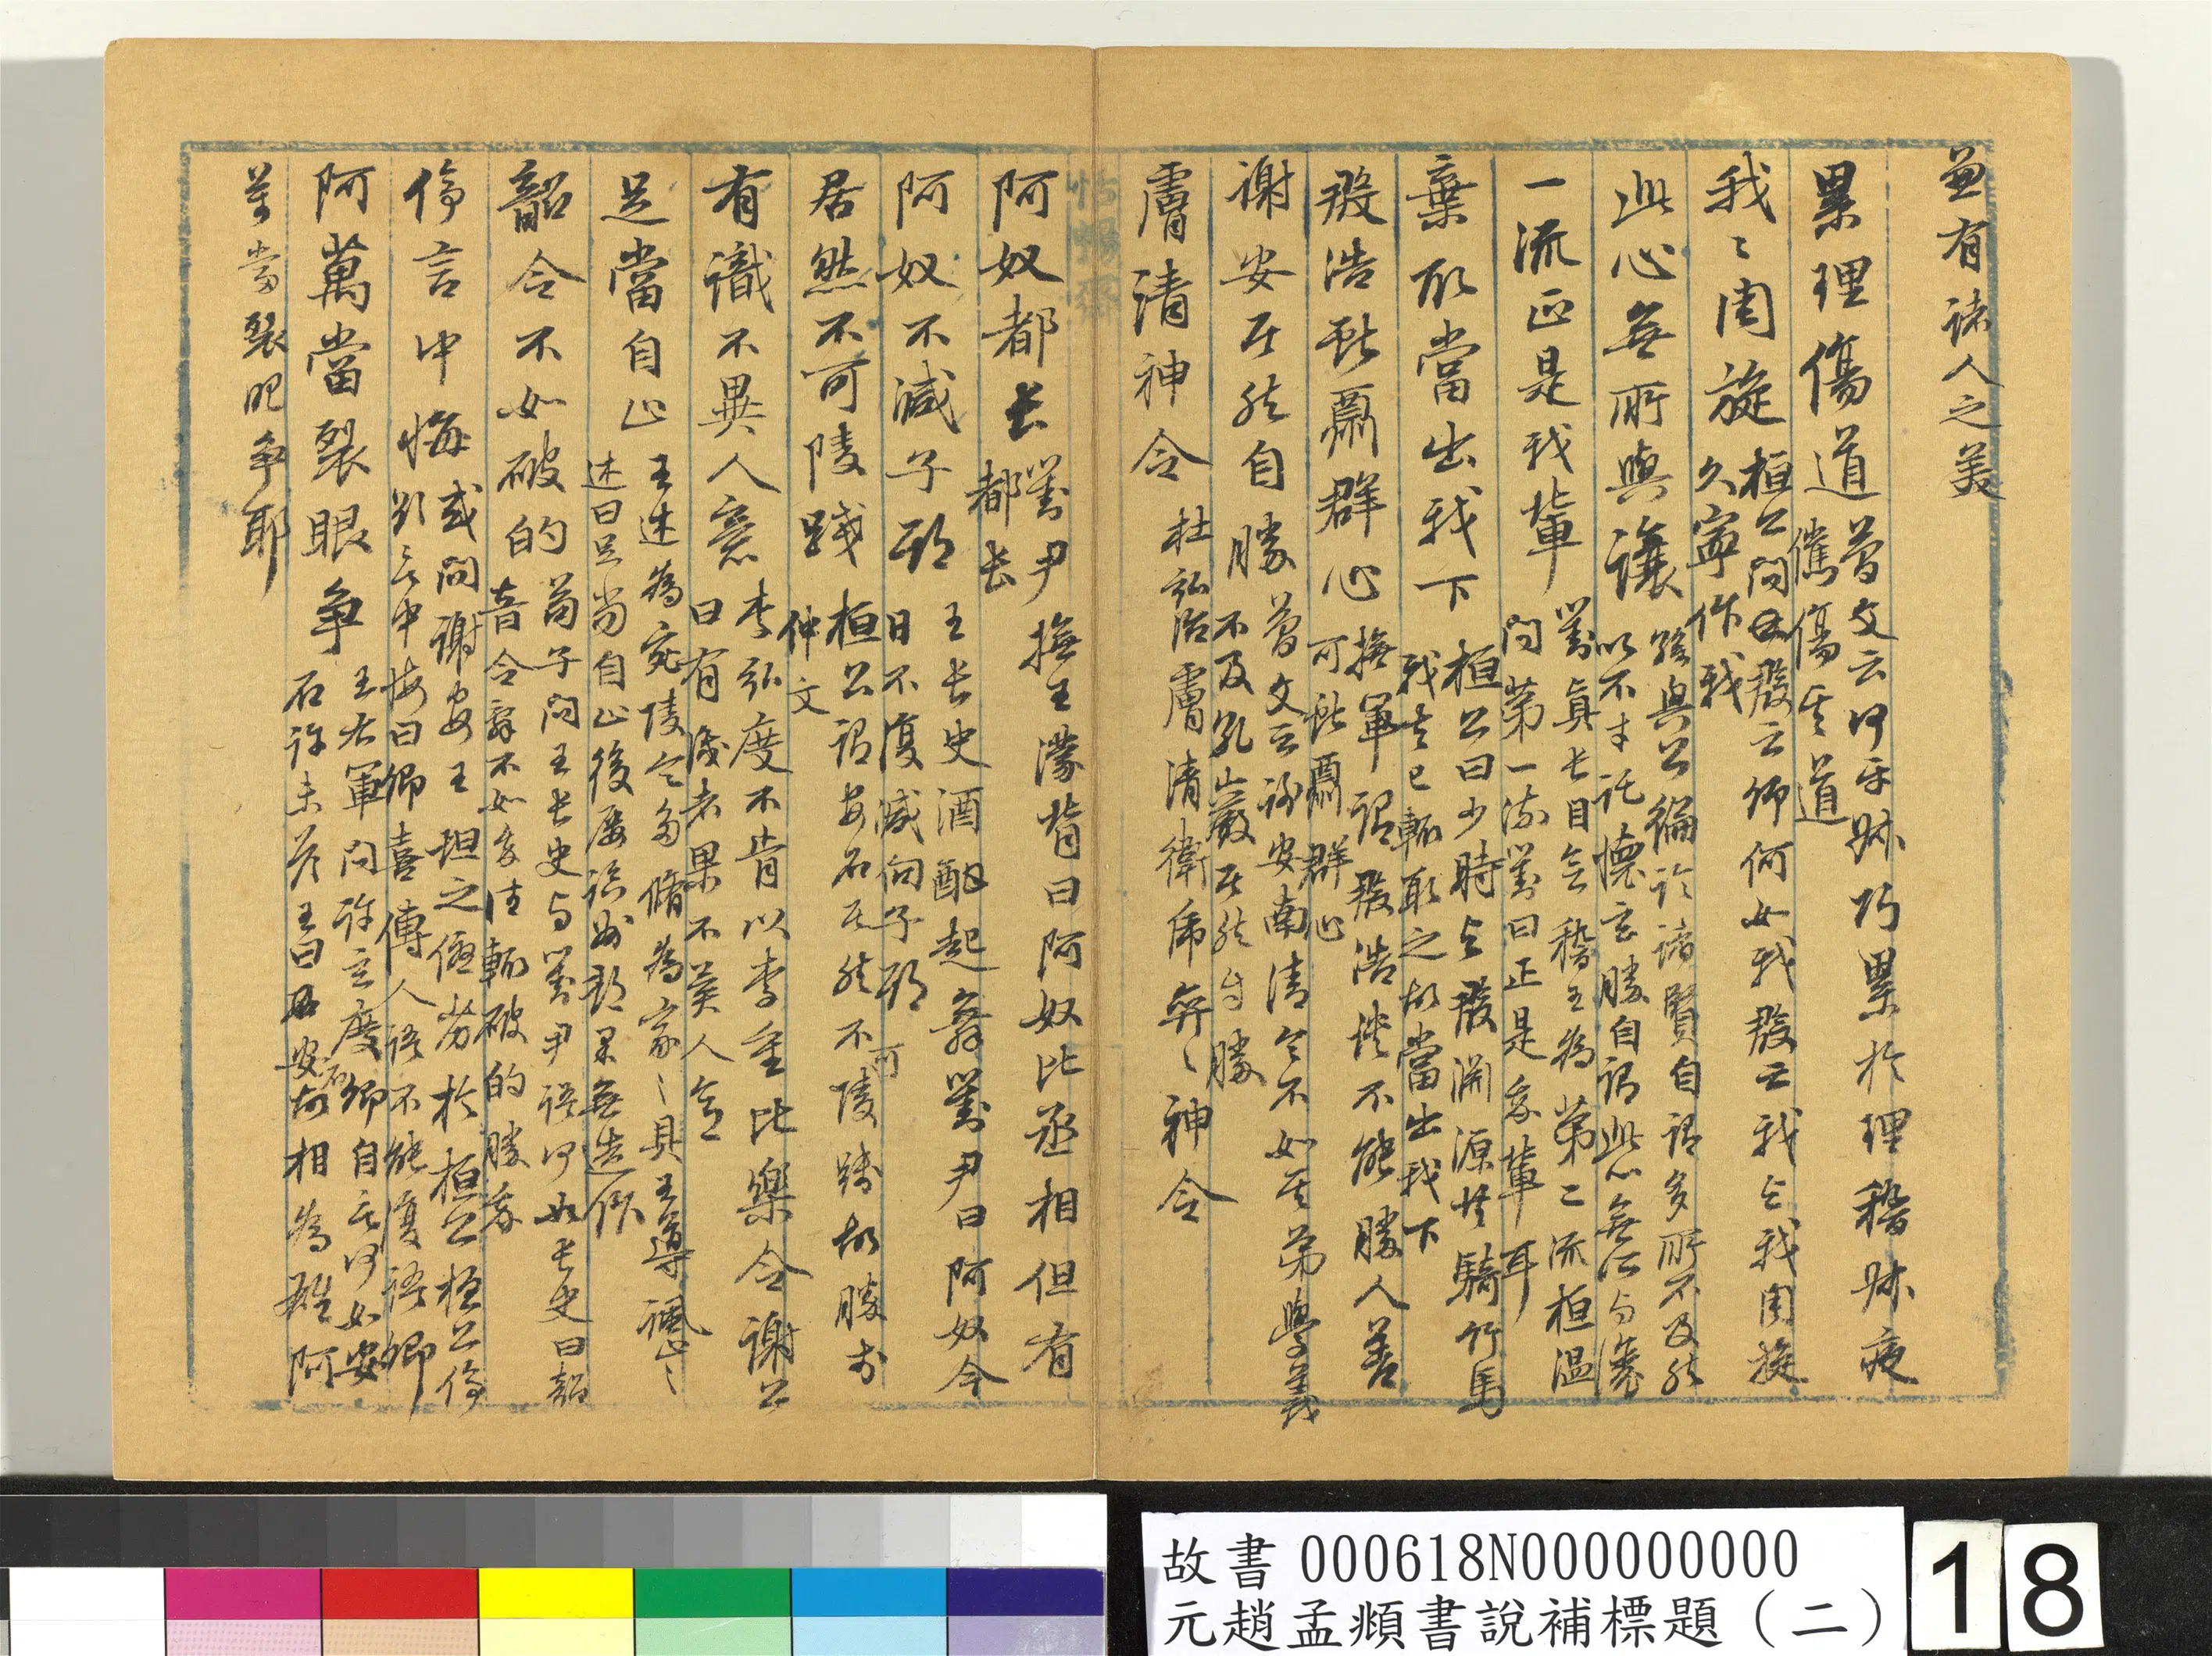 兼有諸人之美
累理傷道 簡文云何平叔巧累於理嵇叔夜
儁傷其道
我〻周旋 桓公問殷云卿何如我殷云我与我周旋
久寧作我
此心無所與讓 孫興公
以不才託懷玄勝自謂此心無所与讓
一流正是我輩 劉真長目會稽王為第二流桓溫
問第一流劉曰正是我輩耳
棄取當出我下 桓公曰少時与殷淵源共騎竹馬
我去已輒取之故當出我下
殷浩獻 群心 撫軍謂殷浩談不能勝人善
可獻 群心
謝安居然自勝 簡文云謝安南清令不如其弟學義
不及孔巖居然自勝
膚清神令 杜弘治膚清衛虎奕〻神令
怡暢齋
阿奴都長 劉尹撫王濛背曰阿奴比丞相但有
都長
阿奴不減子期 王長史酒酣起舞劉尹曰阿奴今
日不復減向子期
居然不可陵踐 桓公謂安石居然不可陵踐故勝
仲文
有識不異人意 李弘度不肯以李重比樂令謝公
曰有識者果不異人意
足當自止 王述為宛陵令 脩為家〻具王導諷之〻
述曰足當自止後屢 州郡 無造
韶令不如破的 苟子問王長史与劉尹語何如長史曰韶
音令辭不如 往輒破的勝我
停言中悔 或問謝安王坦之優劣於桓公桓公停
欲言中悔曰卿喜傳人語不能復語卿
阿萬當裂眼爭 王右軍問許玄度卿自言何如安
石許未答王曰 安石故相為雄阿
萬當裂眼爭耶
故書 000618N000000000
元趙孟頫書說補標題（二）
18